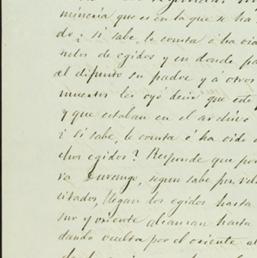 mineria que es en la que se ha
do; si sabe, le consta ó ha oid
nelos de egidos y en donde pa
al difunto su padre y á otros
muertos les oyó decir que este
y que estaban en el archivo
; si sabe, le consta ó ha oido
chos egidos? Responde que por
ra Durango, segun sabe por
citados, llegan los egidos hasta
sur y oriente alcanzan hasta
dando vuelta por el oriente al